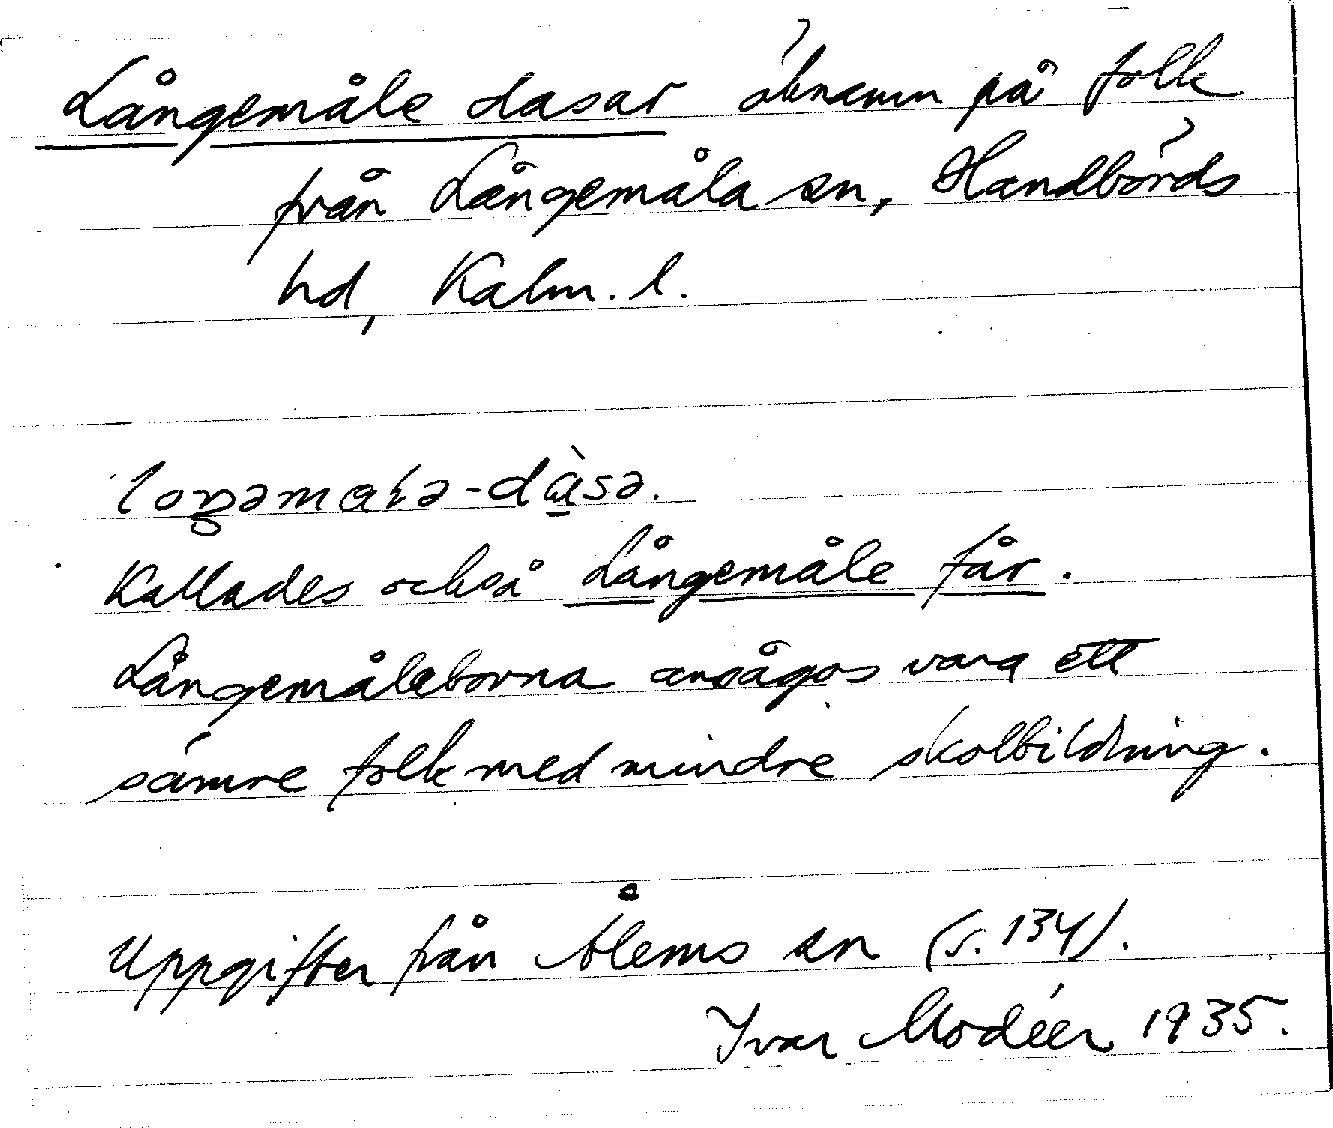 Långemåle dasar öknamn på folk
från Långemåla sn, Handbörds
hd, Kalm. l.
Kallades också Långemåle får.
Långemåleborna ansågos vara ett
sämre folk med mindre skolbildning.
Uppgifter från Ålems sn (s. 134).
Ivar Modéer 1935.